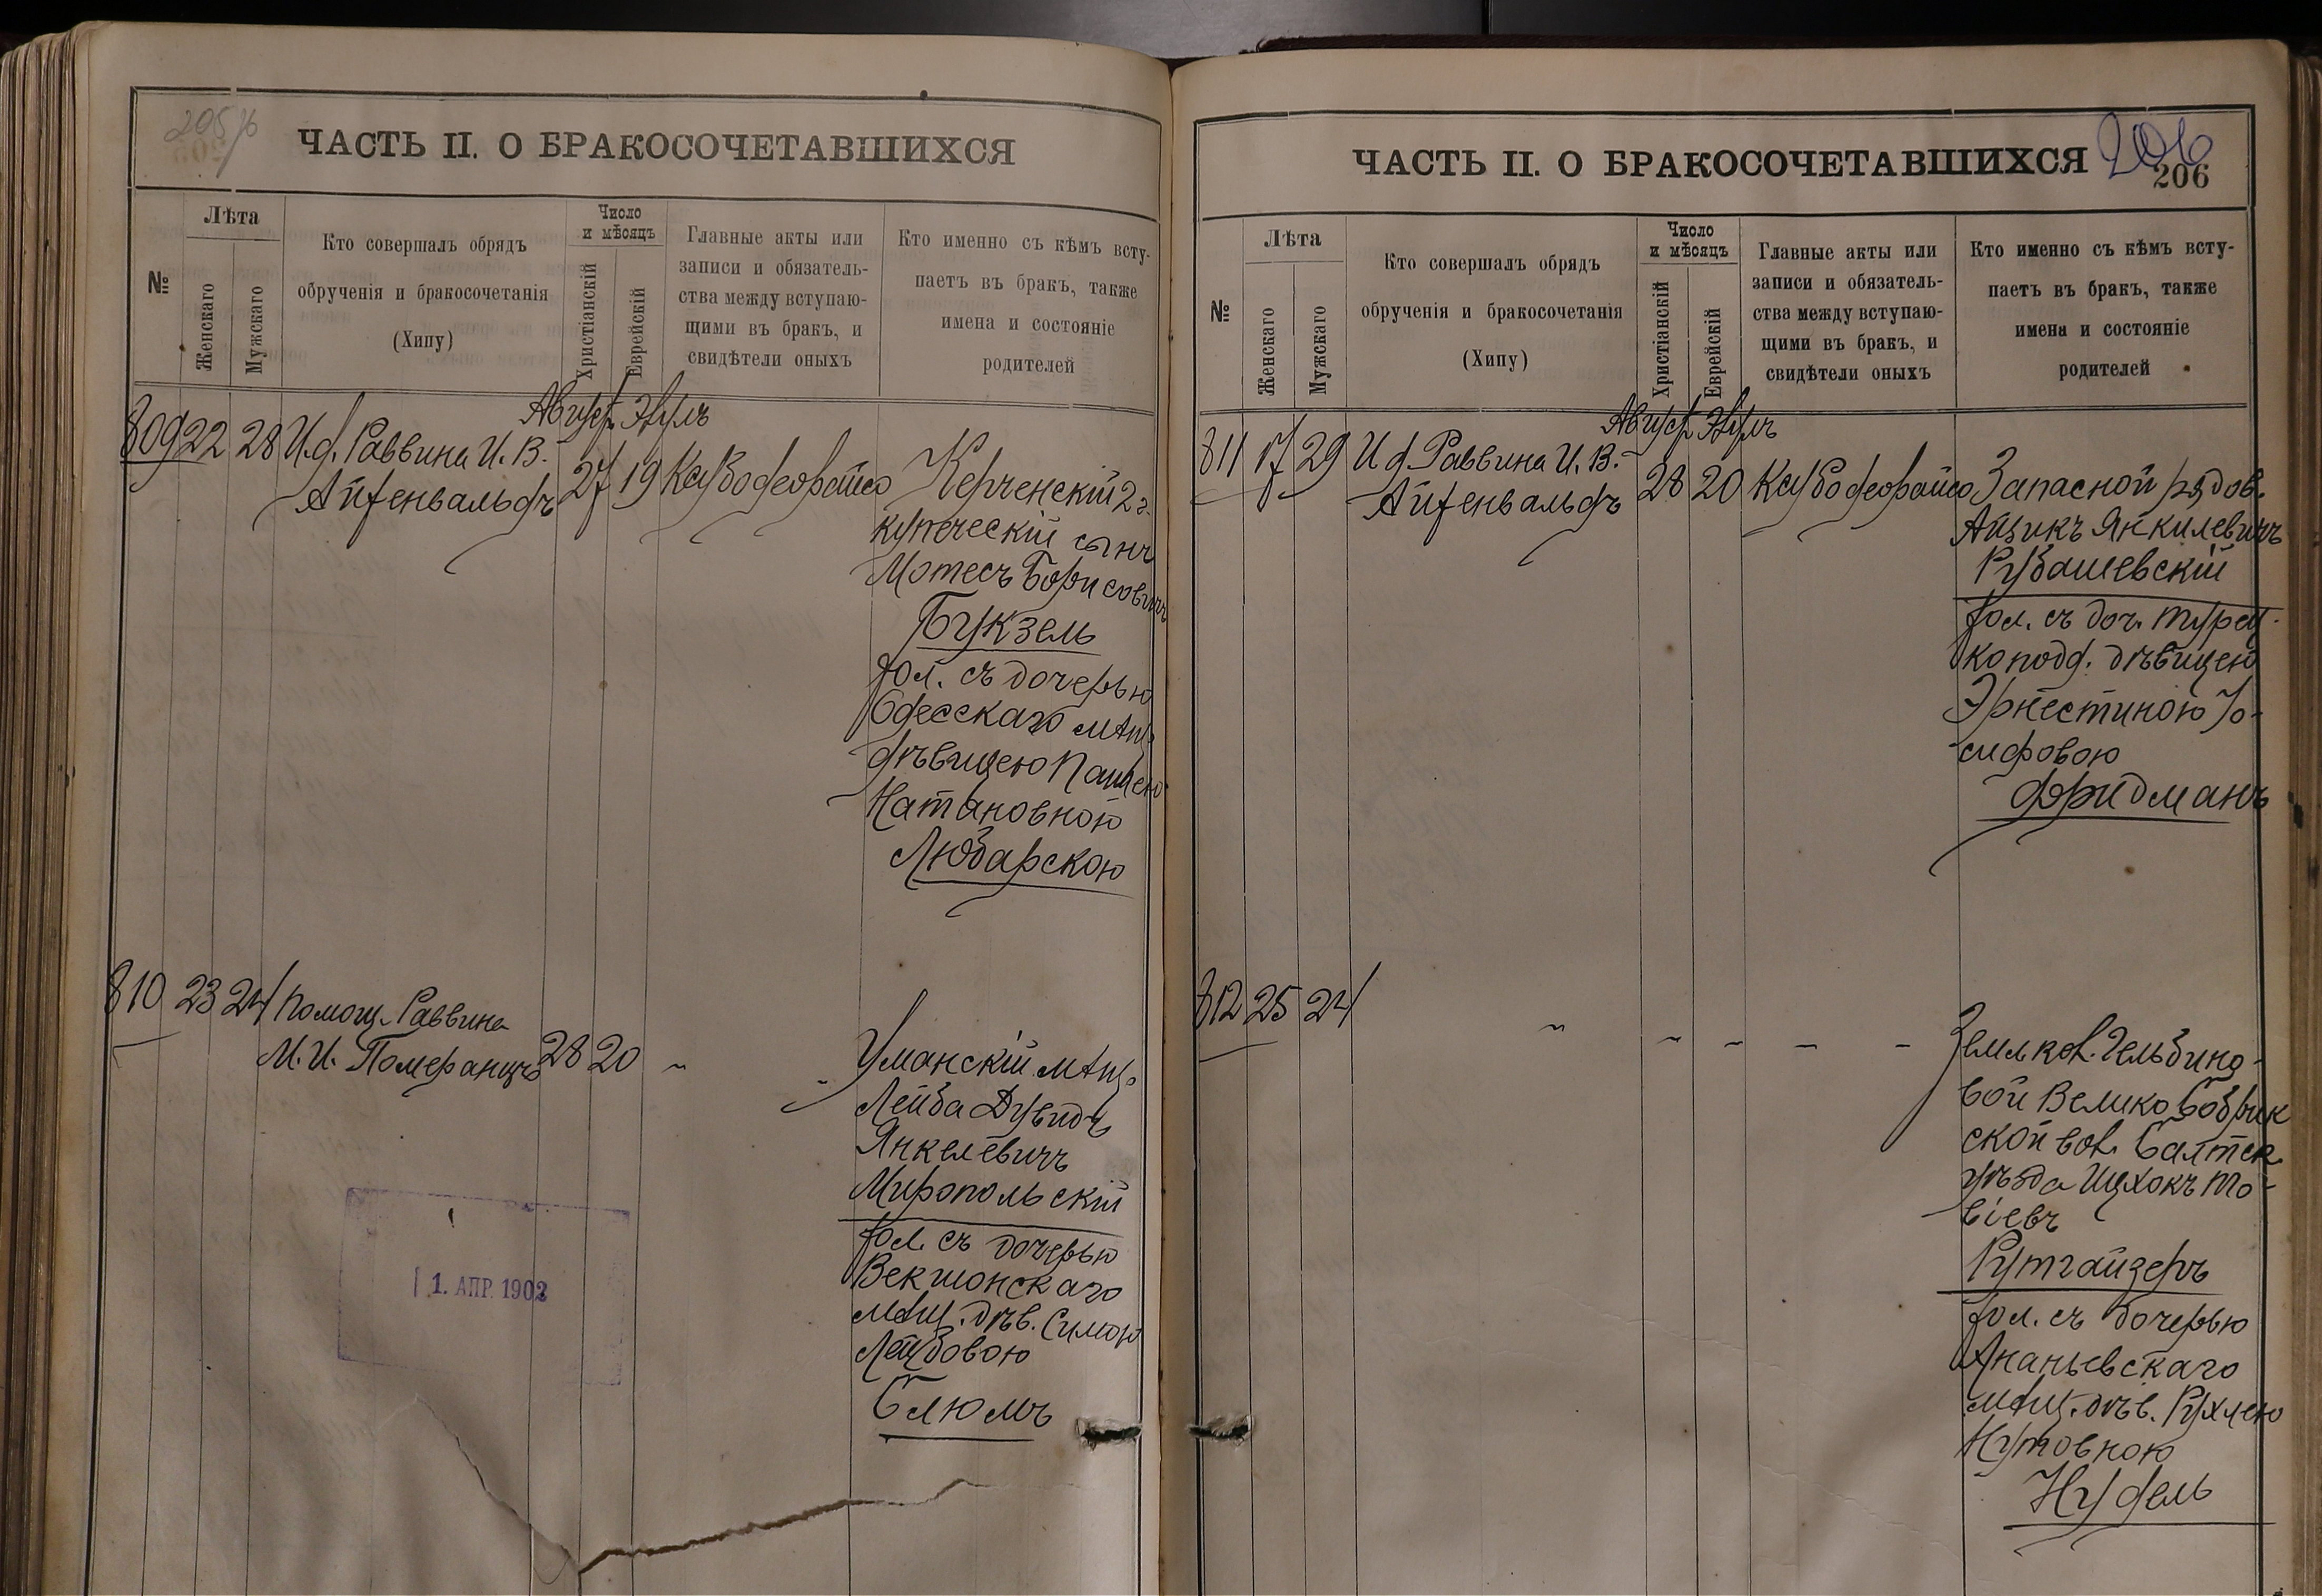 205/б
ЧАСТЬ II. О БРАКОСОЧЕТАВШИХСЯ
№
Лѣта
Женскаго
Мужскаго
Кто совершалъ обрядъ
обрученія и бракосочетанія
(Хипу)
Число
и мѣсяцъ
Христіанскій
Еврейскій
Главные акты или
записи и обязатель-
ства между вступаю-
щими въ бракъ, и
свидѣтели оныхъ
Кто именно съ кѣмъ всту-
паетъ въ бракъ, также
имена и состояніе
родителей
Август. Элулъ
809 22 28 И.д. Раввина И. В.
Айзенвальдъ
27 19
Керченскій 2 г.
купеческій сынъ
Мотесъ Борисовичъ
Букзель
хол. съ дочерью
Одесскаго мѣщ.
дѣвицею
Натановною
Любарскою
810 23 24 Помощ. Раввина
М. И. Померанцъ
28 20 " "
Уманскій мѣщ.
Лейба Дувидъ
Янкелевичъ
Миропольскій
хол. съ дочерью
Векшонскаго
мѣщ. дѣв. Симою
Лейбовою
Блюмъ
1. АПР. 1902
ЧАСТЬ II. О БРАКОСОЧЕТАВШИХСЯ
206
206
№
Лѣта
Женскаго
Мужскаго
Кто совершалъ обрядъ
обрученія и бракосочетанія
(Хипу)
Число
и мѣсяцъ
Христіанскій
Еврейскій
Главные акты или
записи и обязатель-
ства между вступаю-
щими въ бракъ, и
свидѣтели оныхъ
Кто именно съ кѣмъ всту-
паетъ въ бракъ, также
имена и состояніе
родителей
Август. Элулъ
811 17 29 И д. Раввина И. В.
Айзенвальдъ
28 20
Запасной рядов.
Айзикъ Янкилевичъ
Рубашевскій
хол. съ доч. турец-
коподд. дѣвицею
Эрнестиною Іо-
сифовою
Фридманъ
812 25 24 " " " " "
Земл. кол. Гельбино-
вой Велико Бобрик
ской вол. Балтск.
уѣзда Ицхокъ То-
віевъ
Рутгайзеръ
хол. съ дочерью
Ананьевскаго
мѣщ. дѣв. Рухлею
Нутовною
Нудель